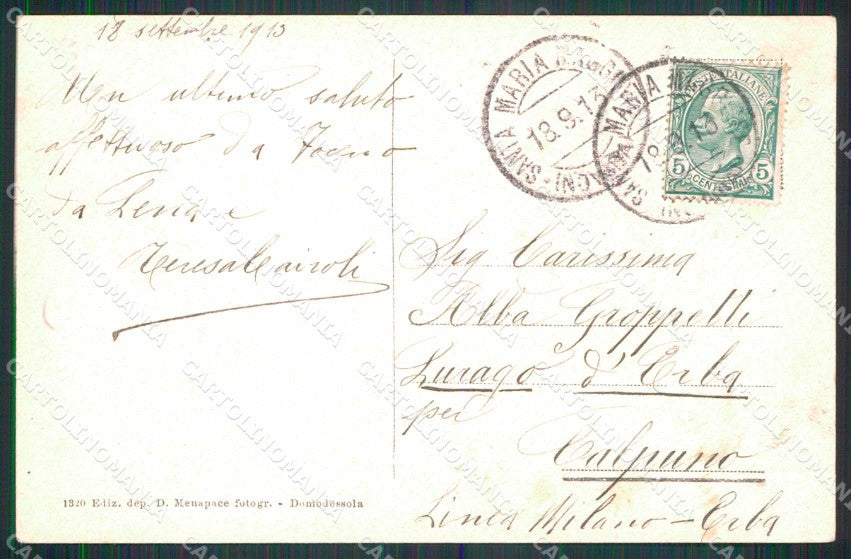 18 settembre 1913
Un ultimo saluto
affettuoso da Toceno
da Lena e
Teresa Cairoli
SANTA MARIA MAGG
18.9.13
MARIA M
POSTE ITALIANE
5 CENTESIMI 5
Sig Carissima
Alba Groppelli
Lurago d'Erba
per
Calpuno
Linea Milano-Erba
1320 Ediz. dep. D. Menapace fotogr. - Domodossola
CARTOLINOMANIA